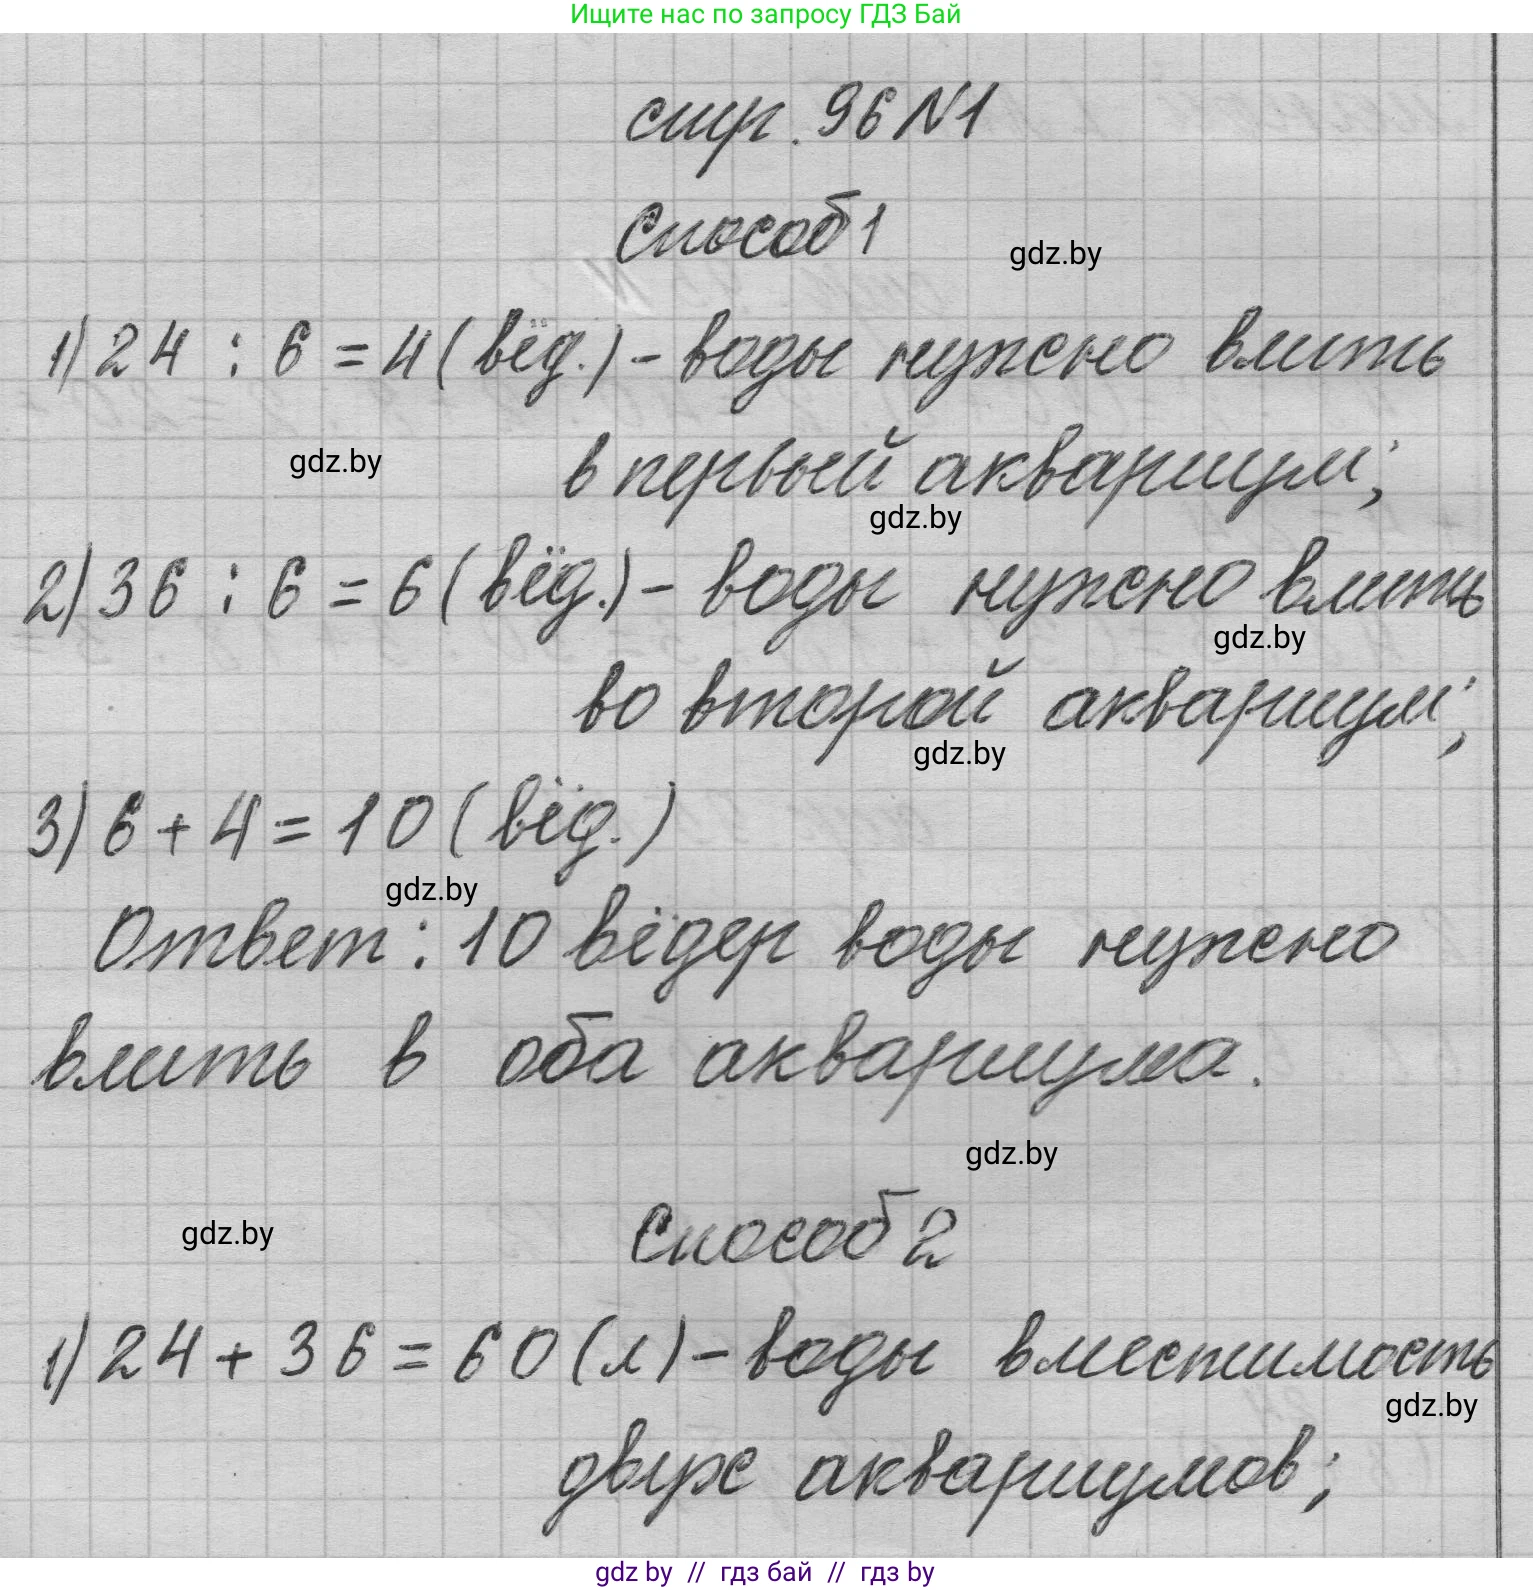 Ищите нас по запросу ГДЗ Бай
стр. 96 №1
Способ 1
gdz.by
1) 24 : 6 = 4 (вёд.) - воды нужно влить
gdz.by
в первый аквариум;
gdz.by
2) 36 : 6 = 6 (вёд.) - воды нужно влить
gdz.by
во второй аквариум;
gdz.by
3) 6 + 4 = 10 (вёд.)
gdz.by
Ответ: 10 вёдер воды нужно
влить в оба аквариума.
gdz.by
gdz.by
Способ 2
1) 24 + 36 = 60 (л) - воды вместимость
gdz.by
двух аквариумов;
gdz by // гдз бай // гдз by